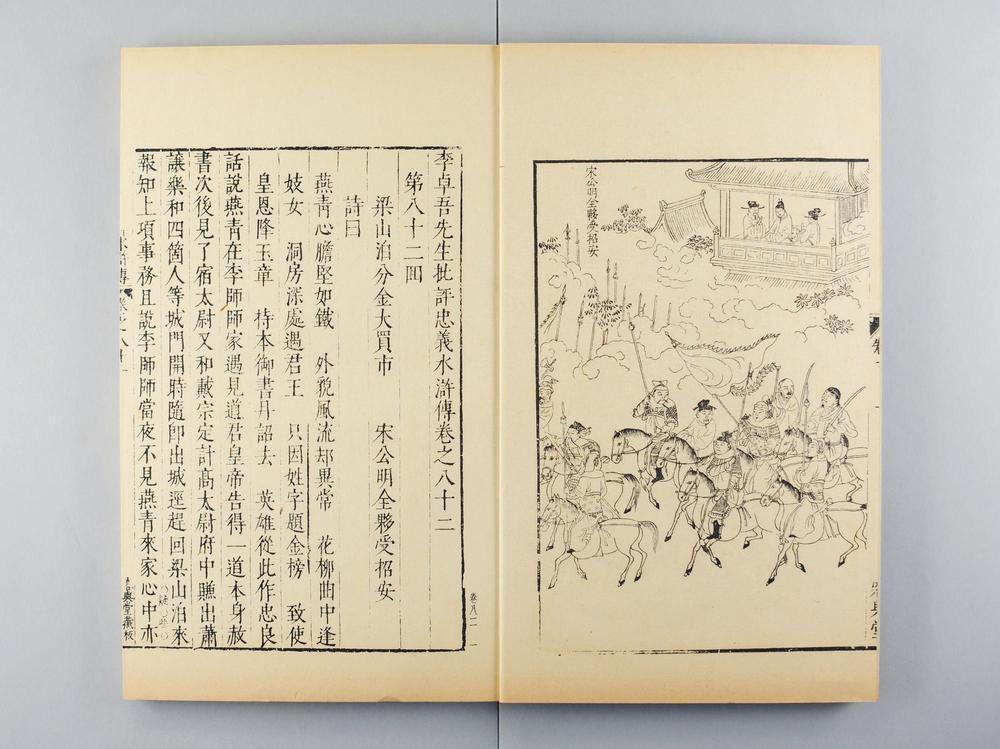 宋公明全夥受招安
李卓吾先生批評忠義水滸傳卷之八十二
第八十二回
梁山泊分金大買市　宋公明全夥受招安
詩曰
燕青心膽堅如鐵　外貌風流却異常　花柳曲中逢
妓女　洞房深處遇君王　只因姓字題金榜　致使
皇恩降玉章　持本御書丹詔去　英雄從此作忠良
話說燕青在李師師家遇見道君皇帝告得一道本身赦
書次後見了宿太尉又和戴宗定計高太尉府中賺出蕭
讓樂和四箇人等城門開時隨即出城逕趕回梁山泊來
報知上項事務且說李師師當夜不見燕青來家心中亦
容與堂藏板
卷八二　一